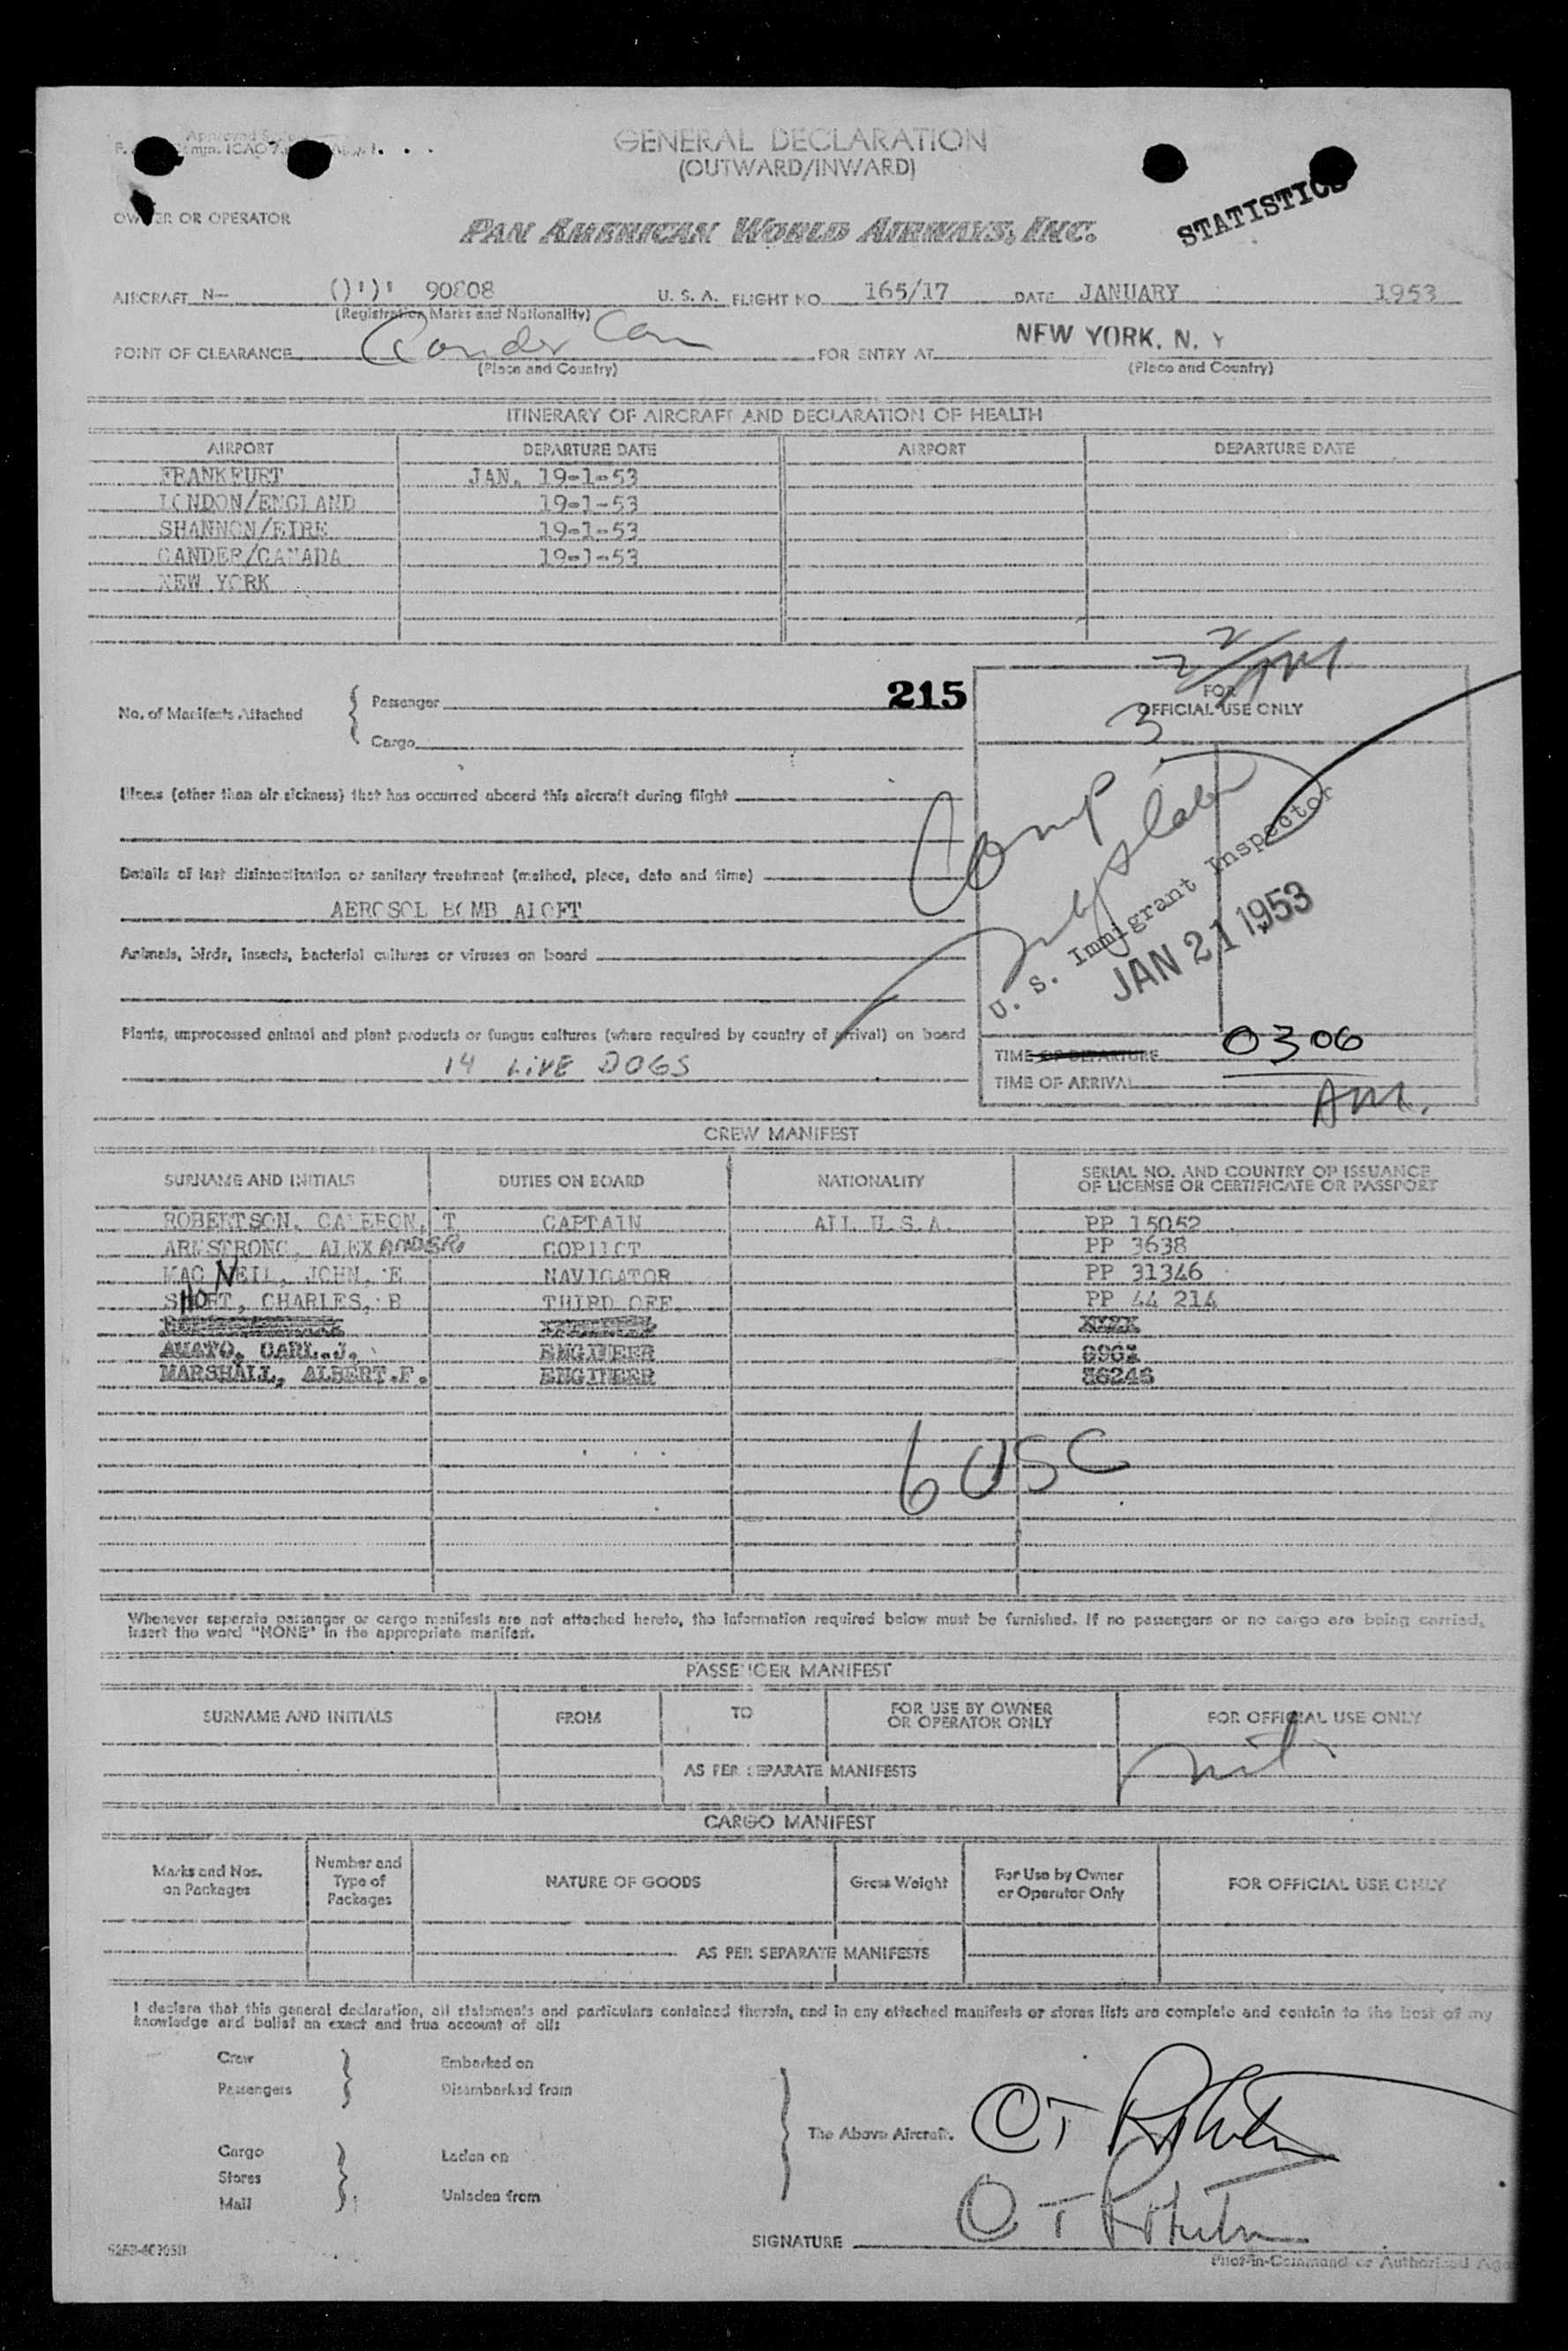 GENERAL DECLARATION
(OUTWARD/INWARD)
STATISTICS
OWNER OR OPERATOR
PAN AMERICAN WORLD AIRWAYS, INC.
AIRCRAFT N— 90808 U. S. A. FLIGHT NO. 165/17 DATE JANUARY 1953
(Registration Marks and Nationality)
POINT OF CLEARANCE Gander Can FOR ENTRY AT NEW YORK, N. Y
(Place and Country) (Place and Country)
ITINERARY OF AIRCRAFT AND DECLARATION OF HEALTH
AIRPORT DEPARTURE DATE AIRPORT DEPARTURE DATE
FRANKFURT JAN. 19-1-53
LONDON/ENGLAND 19-1-53
SHANNON/EIRE 19-1-53
GANDER/CANADA 19-1-53
NEW YORK
No. of Manifests Attached { Passenger 215
Cargo
FOR
OFFICIAL USE ONLY
3
Illness (other than air sickness) that has occurred aboard this aircraft during flight
Comp
Details of last disinsectization or sanitary treatment (method, place, date and time)
AEROSOL BOMB ALOFT
U. S. Immigrant Inspector
JAN 21 1953
Animals, birds, insects, bacterial cultures or viruses on board
Plants, unprocessed animal and plant products or fungus cultures (where required by country of arrival) on board
14 LIVE DOGS
TIME OF DEPARTURE 0306
TIME OF ARRIVAL AM.
CREW MANIFEST
SURNAME AND INITIALS DUTIES ON BOARD NATIONALITY SERIAL NO. AND COUNTRY OF ISSUANCE
OF LICENSE OR CERTIFICATE OR PASSPORT
ROBERTSON, CAMERON, T CAPTAIN ALL U.S.A. PP 15052
ARMSTRONG, ALEXANDER COPILOT PP 3638
MAC NEIL, JOHN, E NAVIGATOR PP 31346
SHORT, CHARLES, B THIRD OFF PP 44 214
AMATO, CARL.J. ENGINEER
MARSHALL, ALBERT.F. ENGINEER
6 USC
Whenever separate passenger or cargo manifests are not attached hereto, the information required below must be furnished. If no passengers or no cargo are being carried,
insert the word "NONE" in the appropriate manifest.
PASSENGER MANIFEST
SURNAME AND INITIALS FROM TO FOR USE BY OWNER
OR OPERATOR ONLY FOR OFFICIAL USE ONLY
AS PER SEPARATE MANIFESTS nil
CARGO MANIFEST
Marks and Nos.
on Packages Number and
Type of
Packages NATURE OF GOODS Gross Weight For Use by Owner
or Operator Only FOR OFFICIAL USE ONLY
AS PER SEPARATE MANIFESTS
I declare that this general declaration, all statements and particulars contained therein, and in any attached manifests or stores lists are complete and contain to the best of my
knowledge and belief an exact and true account of all:
Crew Embarked on
Passengers Disembarked from
The Above Aircraft.
Cargo Laden on
Stores
Mail Unladen from
SIGNATURE
Pilot-in-Command or Authorized